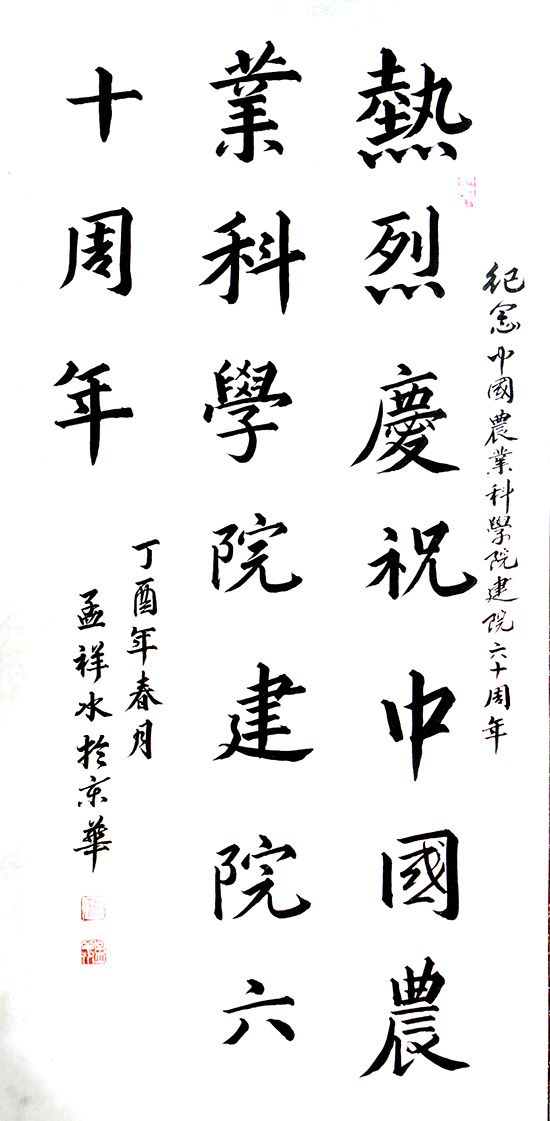 紀念中國農業科學院建院六十周年
熱烈慶祝中國農
業科學院建院六
十周年
丁酉年春月
孟祥水於京華